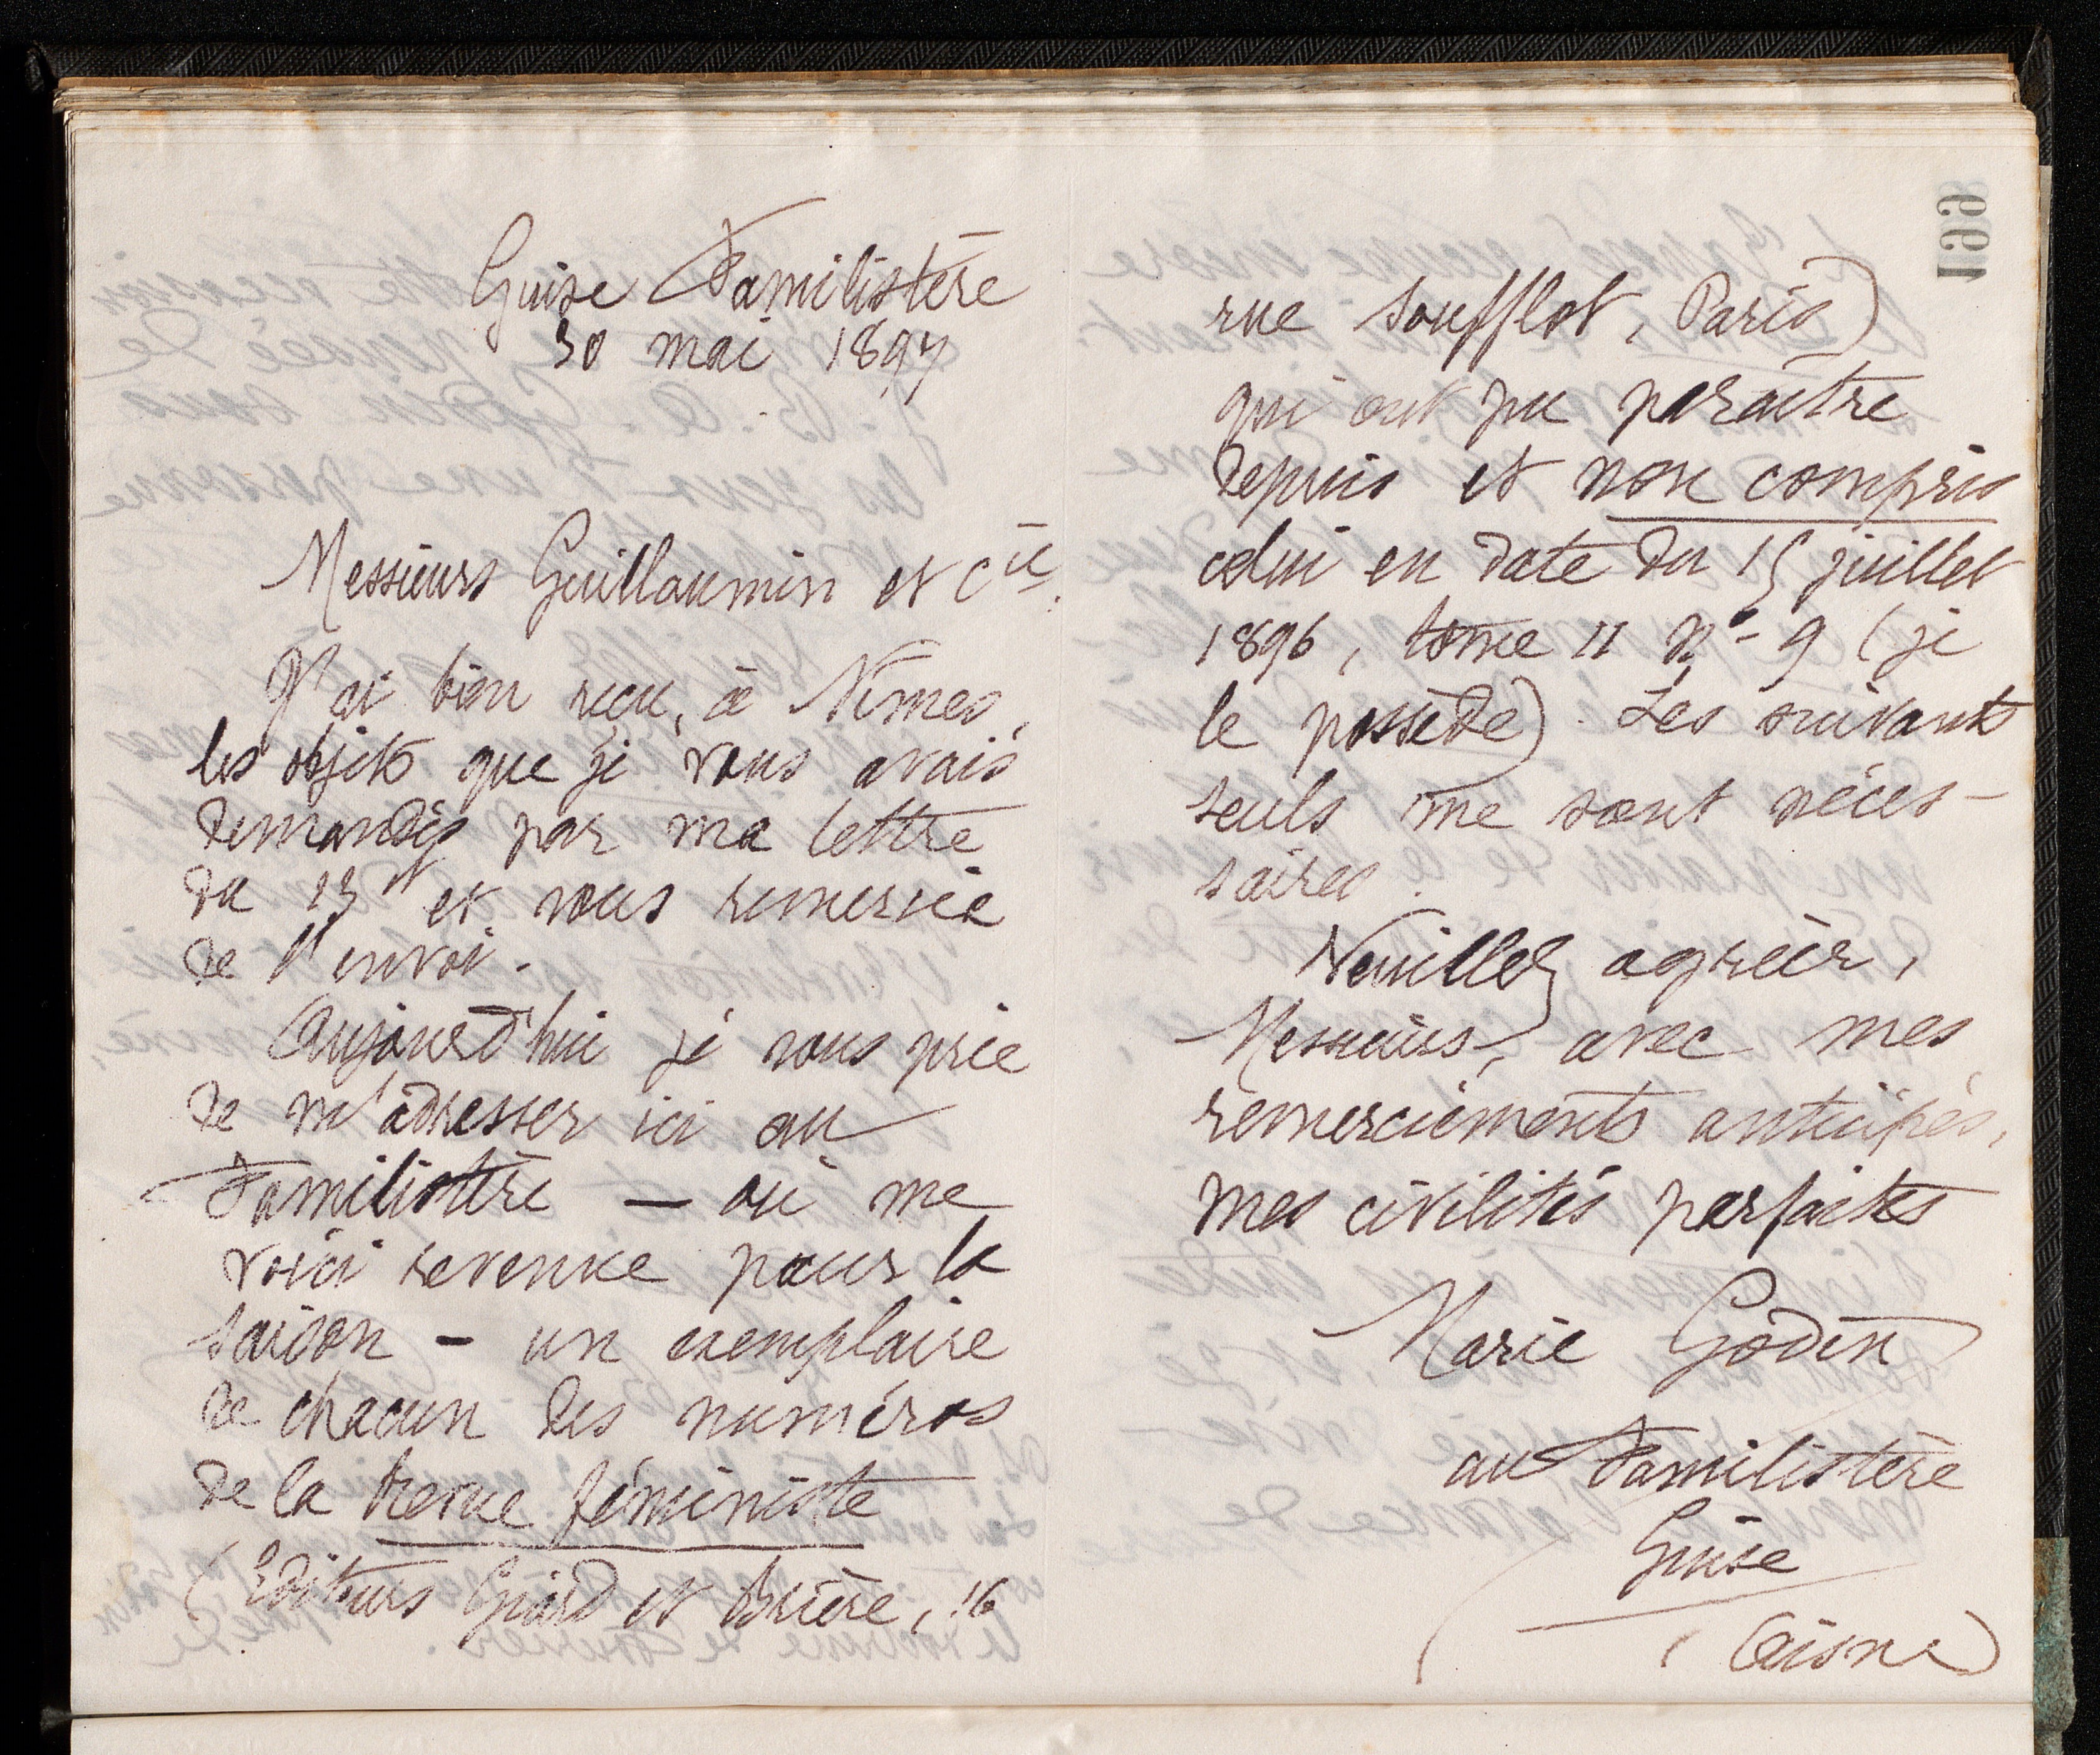 Guise Familistère
30 mai 1897
Messieurs Guillaumin et Cie.
J'ai bien reçu, à Nîmes,
les objets que je vous avais
demandés par ma lettre
du 13 Ct et vous remercie
de l'envoi.
Aujourd'hui je vous prie
de m'adresser ici au
Familistère — où me
voici revenue pour la
saison — un exemplaire
de chacun des numéros
de la Revue féministe
(Editeurs Giard et Brière, 16
199
rue Soufflot, Paris)
qui ont pu paraître
depuis et non compris
celui en date du 15 juillet
1896, tome II No - 9 (je
le possède). Les suivants
seuls me sont néces-
saires.
Veuillez agréer,
Messieurs, avec mes
remerciements anticipés,
mes civilités parfaites
Marie Godin
au Familistère
Guise
(Aisne)